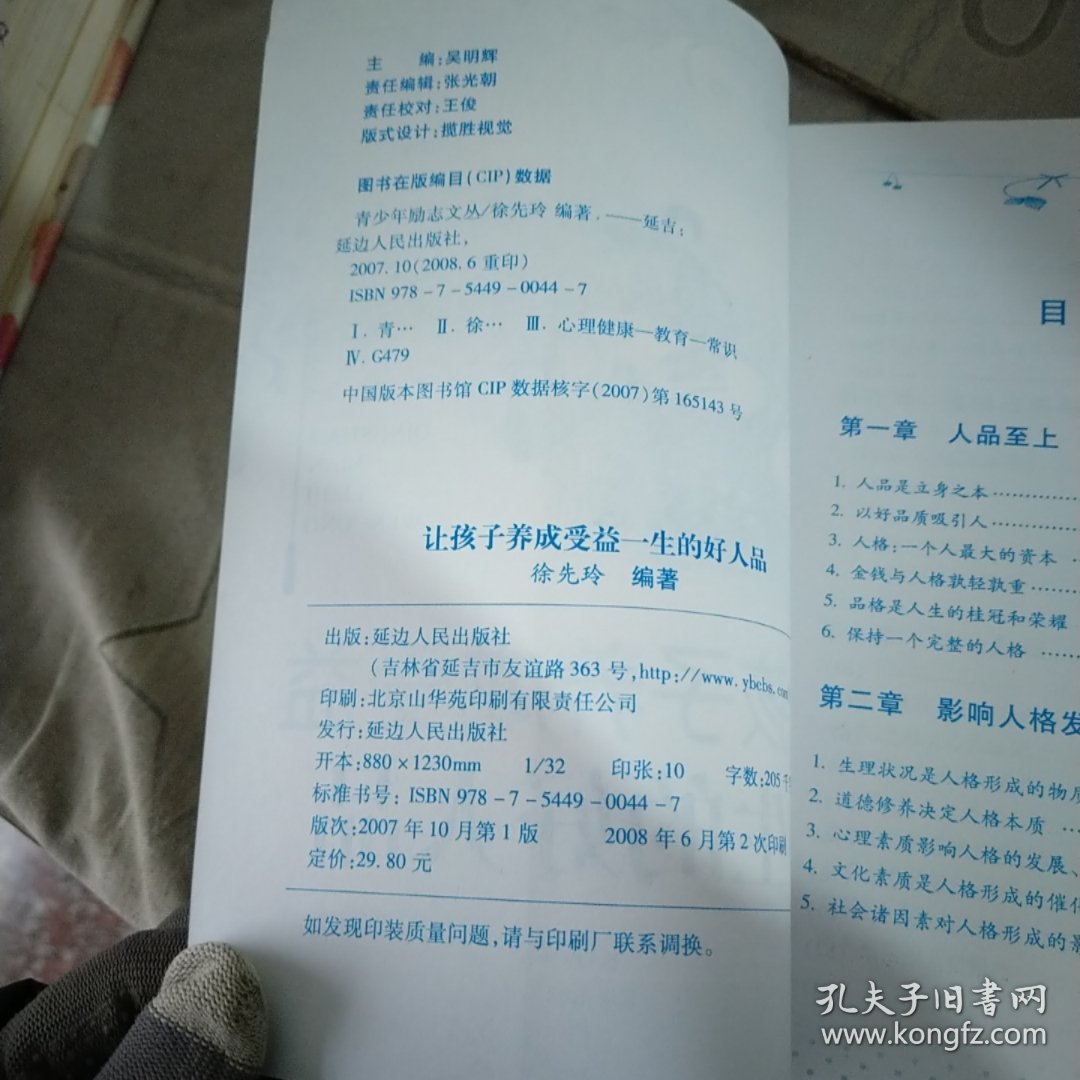 主　　编:吴明辉
责任编辑:张光朝
责任校对:王俊
版式设计:揽胜视觉
图书在版编目(CIP)数据
青少年励志文丛/徐先玲 编著.——延吉:
延边人民出版社,
2007.10(2008.6 重印)
ISBN 978-7-5449-0044-7
Ⅰ.青… Ⅱ.徐… Ⅲ.心理健康—教育—常识
Ⅳ.G479
中国版本图书馆 CIP 数据核字(2007)第 165143 号
让孩子养成受益一生的好人品
徐先玲 编著
出版:延边人民出版社
(吉林省延吉市友谊路 363 号,http://www.ybcbs.com
印刷:北京山华苑印刷有限责任公司
发行:延边人民出版社
开本:880×1230mm 1/32 印张:10 字数:205千
标准书号: ISBN 978-7-5449-0044-7
版次:2007 年 10 月第 1 版 2008 年 6 月第 2 次印刷
定价:29.80 元
如发现印装质量问题,请与印刷厂联系调换。
目
第一章 人品至上
1. 人品是立身之本…………
2. 以好品质吸引人…………
3. 人格:一个人最大的资本 ……
4. 金钱与人格孰轻孰重……
5. 品格是人生的桂冠和荣耀
6. 保持一个完整的人格 ……
第二章 影响人格发
1. 生理状况是人格形成的物质
2. 道德修养决定人格本质 …
3. 心理素质影响人格的发展、
4. 文化素质是人格形成的催化
5. 社会诸因素对人格形成的影
孔夫子旧書网
www.kongfz.com